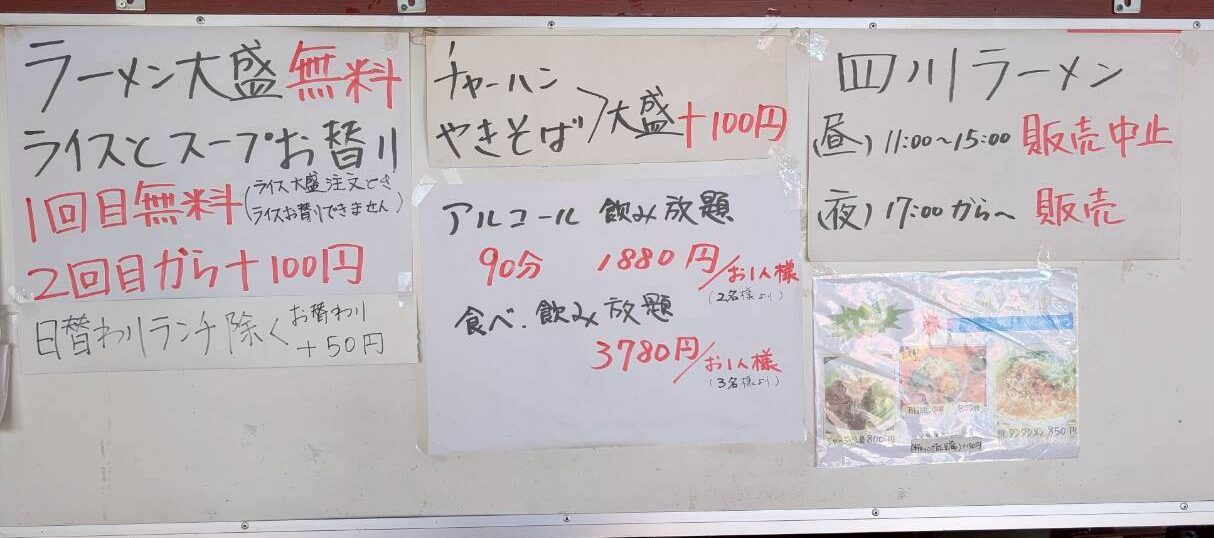 ラーメン大盛無料
ライスとスープお替り
1回目無料(ライス大盛注文とき
ライスお替りできません)
2回目から+100円
日替わりランチ除くお替わり
+50円
チャーハン
やきそば>大盛+100円
アルコール 飲み放題
90分 1880円/お1人様
(2名様より)
食べ.飲み放題
3780円/お1人様
(3名様より)
四川ラーメン
(昼)11:00~15:00 販売中止
(夜)17:00から~ 販売
800円
850円